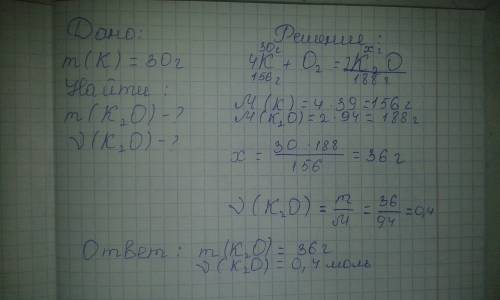 Дано:
m(K) = 30г
Найти:
m(K₂O) - ?
ν(K₂O) - ?
Решение:
30г xг
4K + O₂ = 2K₂O
156г 188г
M(K) = 4 · 39 = 156г
M(K₂O) = 2 · 94 = 188г
x = 30 · 188 / 156 = 36г
ν(K₂O) = m/M = 36/94 = 0,4
Ответ: m(K₂O) = 36г
ν(K₂O) = 0,4 моль